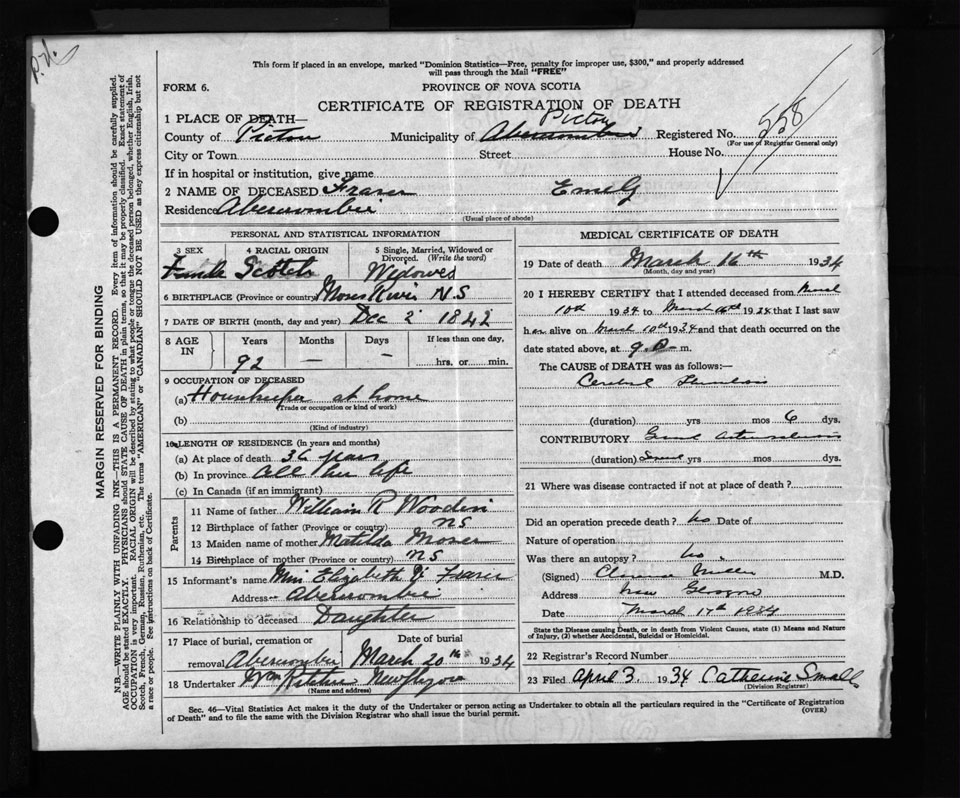 P.N.
This form if placed in an envelope, marked "Dominion Statistics—Free, penalty for improper use, $300," and properly addressed
will pass through the Mail "FREE"
FORM 6.
PROVINCE OF NOVA SCOTIA
CERTIFICATE OF REGISTRATION OF DEATH
1 PLACE OF DEATH—
Pictou
County of Pictou Municipality of Abercrombie Registered No. 558
(For use of Registrar General only)
City or Town Street House No.
If in hospital or institution, give name
2 NAME OF DECEASED Fraser Emely
Residence Abercrombie
(Usual place of abode)
PERSONAL AND STATISTICAL INFORMATION
3 SEX 4 RACIAL ORIGIN 5 Single, Married, Widowed or Divorced. (Write the word)
Female Scotch Widowed
6 BIRTHPLACE (Province or country) Moses River N.S
7 DATE OF BIRTH (month, day and year) Dec 2 1842
8 AGE IN Years Months Days If less than one day,
92 — — hrs. or min.
9 OCCUPATION OF DECEASED
(a) Housekeeper at home
(Trade or occupation or kind of work)
(b)
(Kind of industry)
10 LENGTH OF RESIDENCE (in years and months)
(a) At place of death 36 years
(b) In province all her life
(c) In Canada (if an immigrant)
Parents
11 Name of father William R Wooden
12 Birthplace of father (Province or country) NS
13 Maiden name of mother Matilda Moser
14 Birthplace of mother (Province or country) NS
15 Informant's name Miss Elizabeth Y. Fraser
Address Abercrombie
16 Relationship to deceased Daughter
17 Place of burial, cremation or Date of burial
removal Abercrombie March 20th 1934
18 Undertaker Wm Ritchie New Glasgow
(Name and address)
MEDICAL CERTIFICATE OF DEATH
19 Date of death March 16th 1934
(Month, day and year)
20 I HEREBY CERTIFY that I attended deceased from March
10th 1934 to March 16th 1934 that I last saw
her alive on March 10th 1934 and that death occurred on the
date stated above, at 9 P m.
The CAUSE of DEATH was as follows:—
Cerebral Thrombosis
(duration) yrs mos 6 dys.
CONTRIBUTORY General arteriosclerosis
(duration) Several yrs mos dys.
21 Where was disease contracted if not at place of death?
Did an operation precede death? No Date of
Nature of operation
Was there an autopsy? No.
(Signed) Clarence Miller M.D.
Address New Glasgow
Date March 17th 1934
State the Disease causing Death, or in death from Violent Causes, state (1) Means and Nature
of Injury, (2) whether Accidental, Suicidal or Homicidal.
22 Registrar's Record Number
23 Filed April 3. 1934 Catherine Smalls
(Division Registrar)
Sec. 46—Vital Statistics Act makes it the duty of the Undertaker or person acting as Undertaker to obtain all the particulars required in the "Certificate of Registration
of Death" and to file the same with the Division Registrar who shall issue the burial permit. (OVER)
MARGIN RESERVED FOR BINDING
N.B.—WRITE PLAINLY WITH UNFADING INK—THIS IS A PERMANENT RECORD. Every item of information should be carefully supplied.
AGE should be stated EXACTLY. PHYSICIANS should STATE CAUSE OF DEATH in plain terms, so that it may be properly classified. Exact statement of
OCCUPATION is very important. RACIAL ORIGIN will be described by stating to what people or tongue the deceased person belonged, whether English, Irish,
Scotch, French, German, Russian, Ruthenian, etc. The terms "AMERICAN" or "CANADIAN" SHOULD NOT BE USED as they express citizenship but not
a race or people. See instructions on back of Certificate.